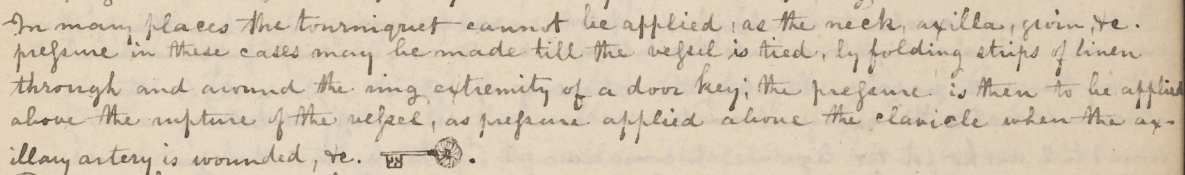 In many places the tourniquet cannot be applied, as the neck, axilla, groin, &c.
pressure in these cases may be made till the vessel is tied, by folding strips of linen
through and around the ring extremity of a door key; the pressure is then to be applied
above the rupture of the vessel, as pressure applied above the clavicle when the ax-
illary artery is wounded, &c.